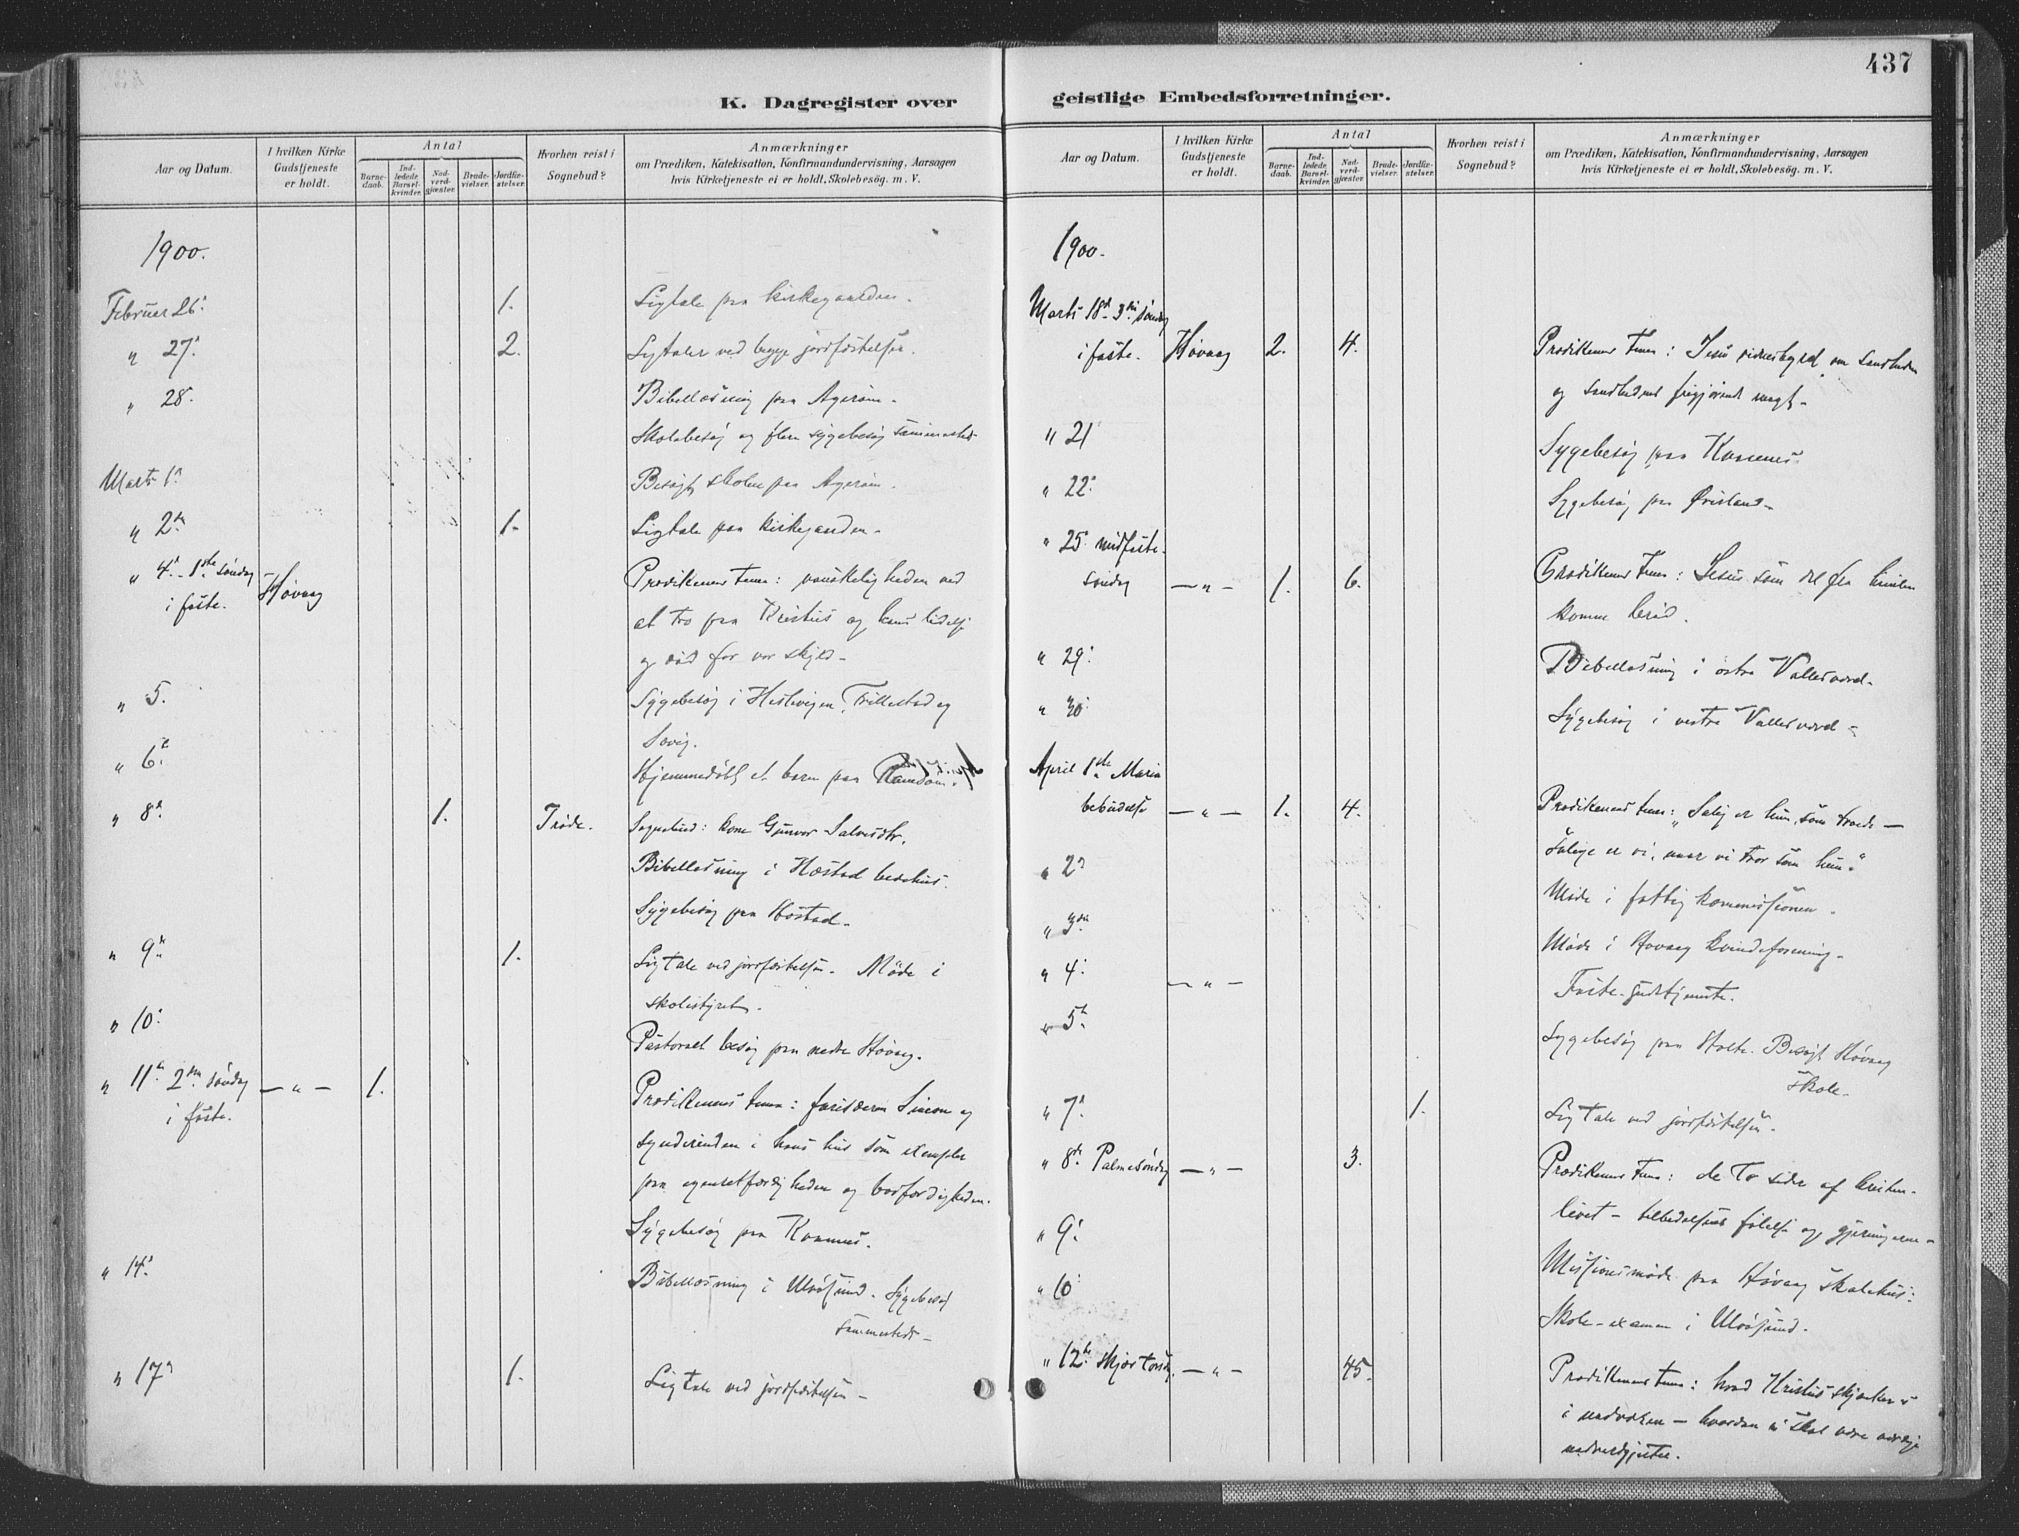 437
K. Dagregister over
geistlige Embedsforretninger.
Aar og Datum.
I hvilken Kirke
Gudstjeneste
er holdt.
Antal
Barne-
daab.
Ind-
ledede
Barsel-
kvinder.
Nad-
verd-
gjæster.
Brude-
vielser.
Jordfæ-
stelser.
Hvorhen reist i
Sognebud?
Anmærkninger
om Prædiken, Katekisation, Konfirmandundervisning, Aarsagen
hvis Kirketjeneste ei er holdt, Skolebesøg. m. V.
1900.
Februar 26. 1. Ligtale paa kirkegaarden.
" 27. 2. Ligtaler ved begge jordfæstelser.
" 28. Bibellæsning paa Agerøen.
Skolebesøg og flere sygebesøg sammesteds
Marts 1. Besøgt skolen paa Agerøen.
" 2. 1. Ligtale paa kirkegaarden.
" 4. 1ste søndag Høvaag Prædikenens tema: vanskeligheden ved
i faste. at tro paa Kristus og hans lidelse
og død for vor skyld.
" 5. Sygebesøg i Heslevigen, Trillestad og
" 6. Hjemmedøbt et barn paa
" 8. 1. Sognebud: kone Gunvor Salvesdtr.
Bibellæsning i Hæstad bedehus.
Sygebesøg paa Hæstad.
" 9. 1. Ligtale ved jordfæstelsen. Møde i
skolestyret.
" 10. Pastoralt besøg paa nedre Høvaag.
" 11. 2den søndag — " — 1. Prædikenens tema: farisæeren Simon og
i faste. synderinden i hans hus som exempler
paa egenretfærdigheden og bodfærdigheden.
Sygebesøg paa Kvannes.
" 14. Bibellæsning i Ulvøsund. Sygebesøg
sammesteds
" 17. 1. Ligtale ved jordfæstelsen
Aar og Datum.
I hvilken Kirke
Gudstjeneste
er holdt.
Antal
Barne-
daab.
Ind-
ledede
Barsel-
kvinder.
Nad-
verd-
gjæster.
Brude-
vielser.
Jordfæ-
stelser.
Hvorhen reist i
Sognebud?
Anmærkninger
om Prædiken, Katekisation, Konfirmandundervisning, Aarsagen
hvis Kirketjeneste ei er holdt, Skolebesøg. m. V.
1900.
Marts 18. 3die søndag
i faste. Høvaag 2. 4. Prædikenens tema: Jesu vidnesbyrd om sandheden
og sandhedens frigjørende magt.
" 21 Sygebesøg paa Kvannes.
" 22. Sygebesøg paa Øvieland
" 25. midfaste-
søndag — " — 1. 6. Prædikenens tema: Jesus som det fra himlen
komne brød.
" 29. Bibellæsning i østre Vallesværd.
" 30. Sygebesøg i vestre Vallesværd
April 1ste Mariæ
bebudelse — " — 1. 4. Prædikenens tema: "Salig er hun, som troede —
salige er vi, naar vi tror som hun."
" 2. Møde i fattigkommissionen.
" 3. Møde i Høvaag kvindeforening.
" 4. — " — Faste-gudstjeneste.
" 5. Sygebesøg paa Holte. Besøgt Høvaag
skole.
" 7. 1. Ligtale ved jordfæstelsen.
" 8. Palmesøndag — " — 3. Prædikenens tema: de to sider af kristen-
livet — tilbedelsens følelse og gjerningerne
" 9. Missionsmøde paa Høvaag skolehus.
" 10 Skole-examen i Ulvøsund.
" 12. skjærtorsdag. — " — 45. Prædikenens tema: hvad Kristus skjænker os
i nadveren — hvordan vi skal være værdige
nadverdgjæster.